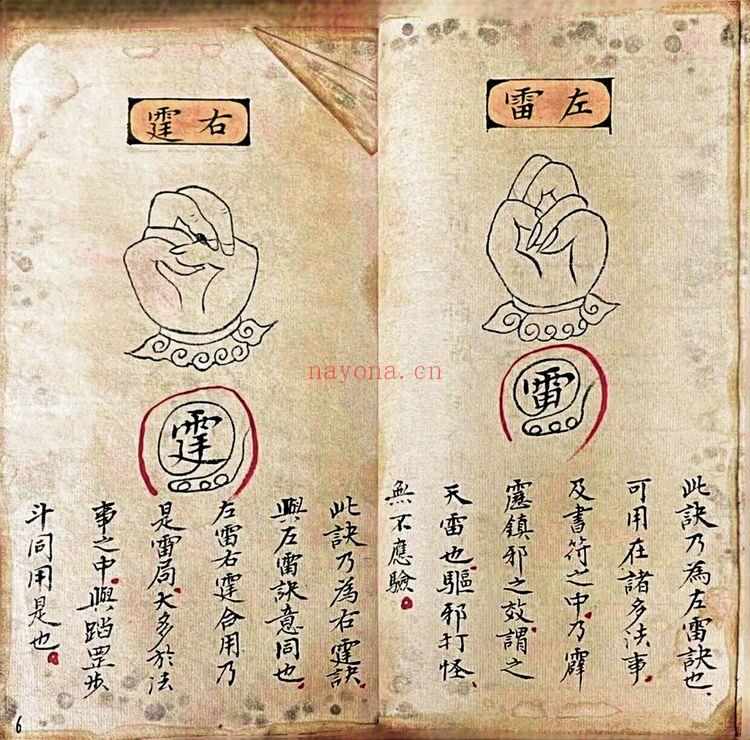 左雷
雷
此訣乃為左雷訣也
可用在諸多法事
及書符之中乃霹
靂鎮邪之效謂之
天雷也驅邪打怪
無不應驗
右霆
霆
此訣乃為右霆訣
與左雷訣意同也
左雷右霆合用乃
是雷局大多於法
事之中與踏罡步
斗同用是也
6
nayona.cn